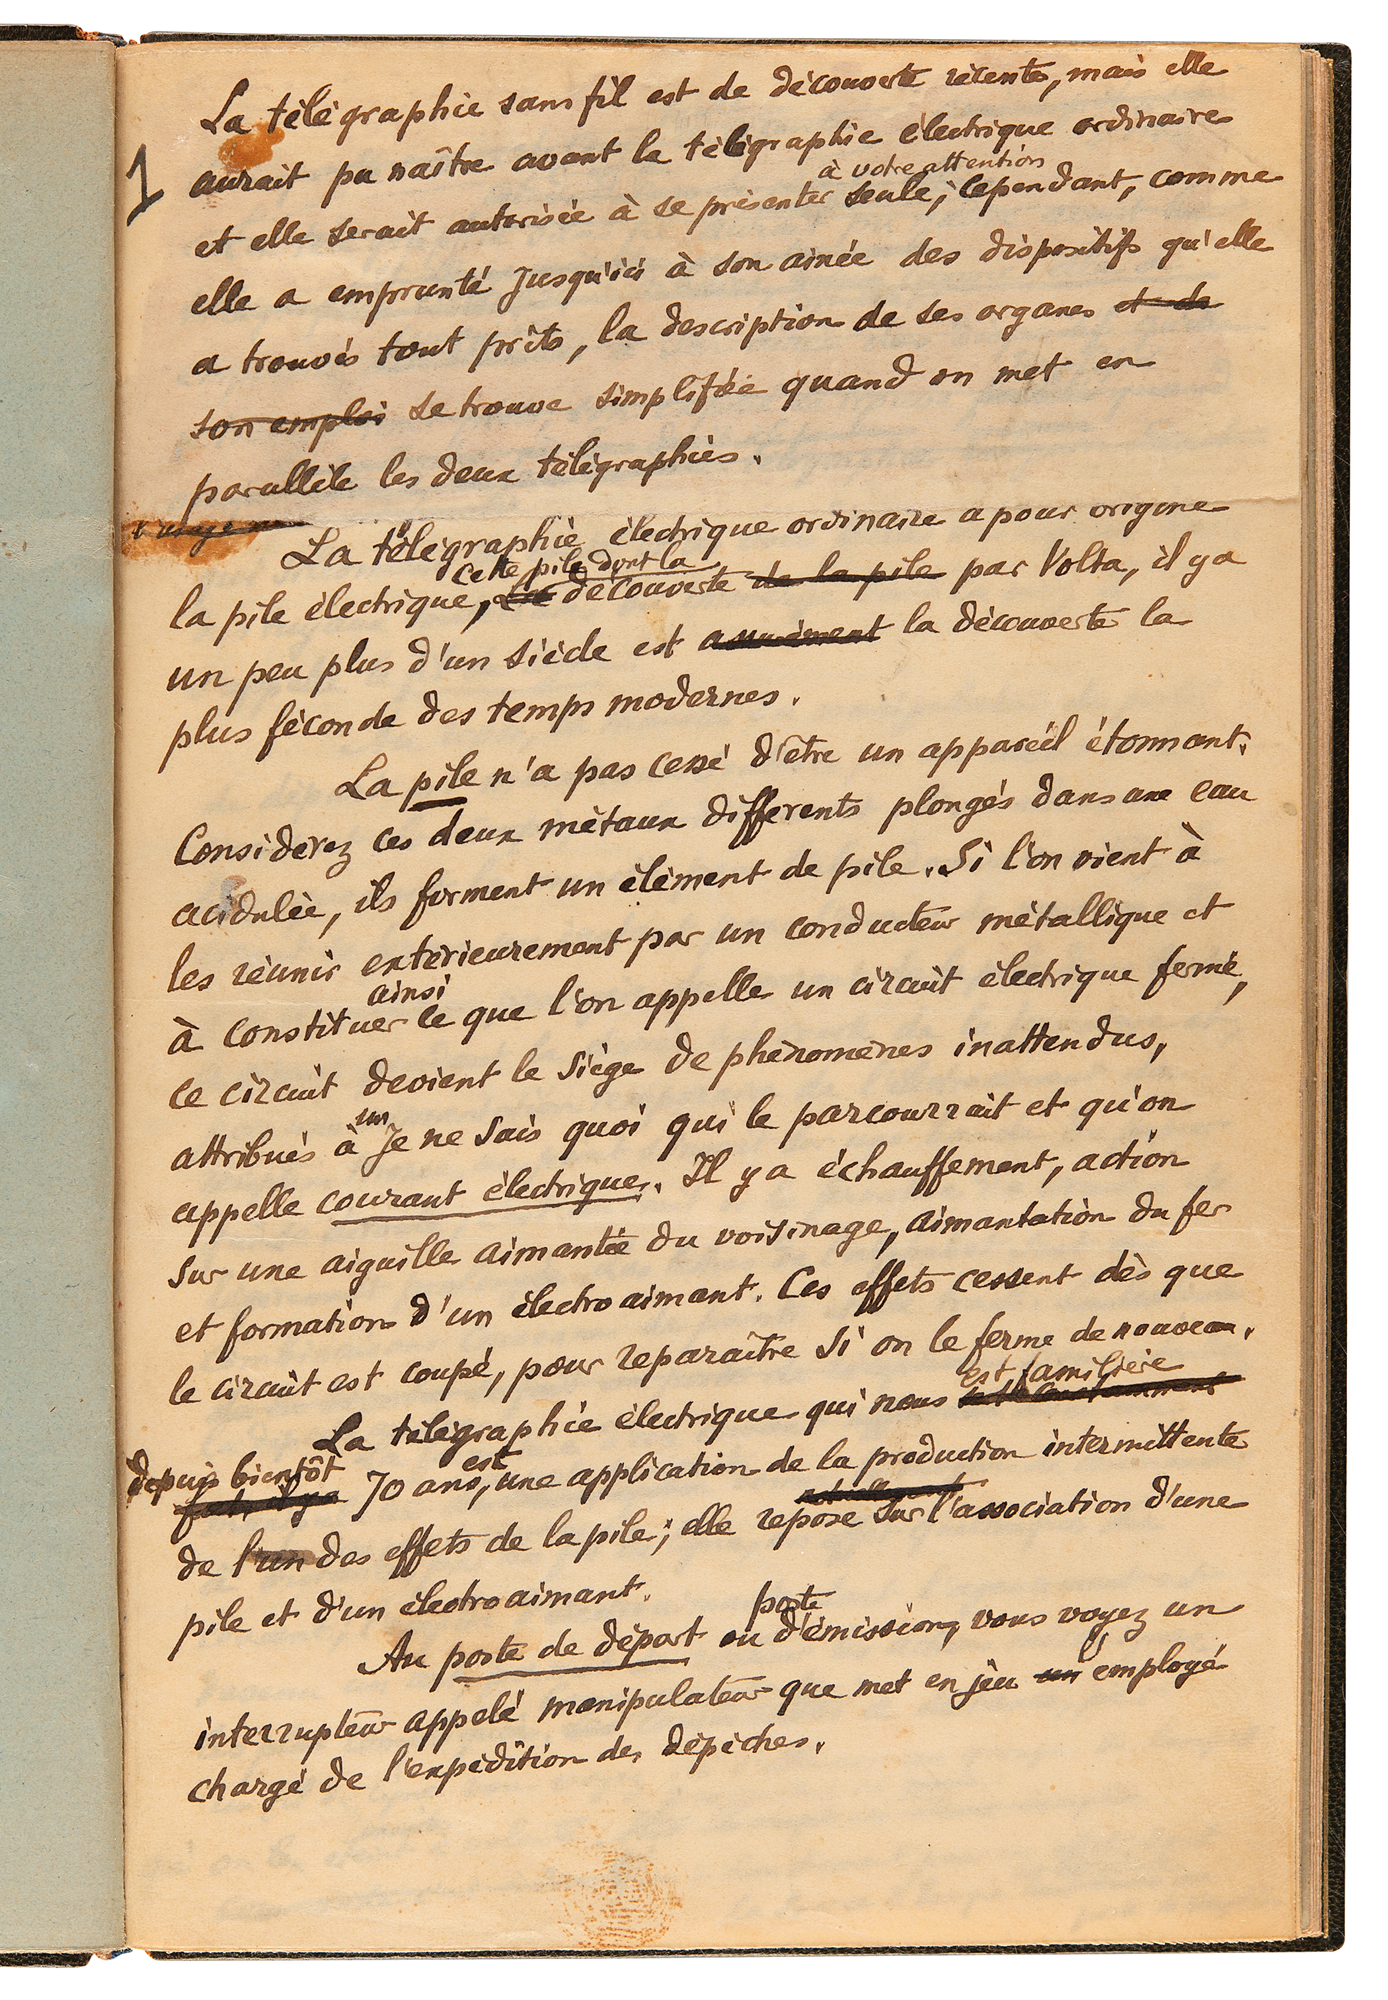 La télégraphie sans fil est de découverte récente, mais elle
1
aurait pu naître avant la télégraphie électrique ordinaire
à votre attention
et elle serait autorisée à se présenter seule; cependant, comme
elle a emprunté jusqu'ici à son ainée des dispositifs qu'elle
a trouvés tout prêts, la description de ses organes et de
son emploi se trouve simplifiée quand on met en
parallèle les deux télégraphies.
La télégraphie électrique ordinaire a pour origine
cette pile dont la
la pile électrique, découverte de la pile par Volta, il y a
un peu plus d'un siècle est assurément la découverte la
plus féconde des temps modernes.
La pile n'a pas cessé d'être un appareil étonnant.
Considérez ces deux métaux différents plongés dans une eau
acidulée, ils forment un élément de pile. Si l'on vient à
les réunir extérieurement par un conducteur métallique et
ainsi
à constituer ce que l'on appelle un circuit électrique fermé,
ce circuit devient le siège de phénomènes inattendus,
un
attribués à je ne sais quoi qui le parcourrait et qu'on
appelle courant électrique. Il y a échauffement, action
sur une aiguille aimantée du voisinage, aimantation du fer
et formation d'un électroaimant. Ces effets cessent dès que
le circuit est coupé, pour reparaître si on le ferme de nouveau.
est familière
La télégraphie électrique qui nous
depuis bientôt
est
70 ans, une application de la production intermittente
de l'un des effets de la pile; elle repose sur l'association d'une
pile et d'un électroaimant.
poste
Au poste de départ ou d'émission, vous voyez un
l'
interrupteur appelé manipulateur que met en jeu un employé
chargé de l'expédition des dépêches.